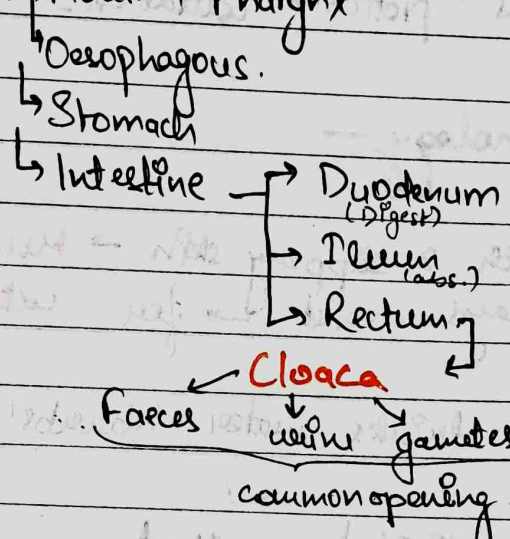 Pharynx
↳Oesophagous.
↳Stomach
↳Intestine → Duodenum
(Digest)
→ Ileum
(abs.)
→ Rectum
Cloaca
Faeces urine gametes
common opening